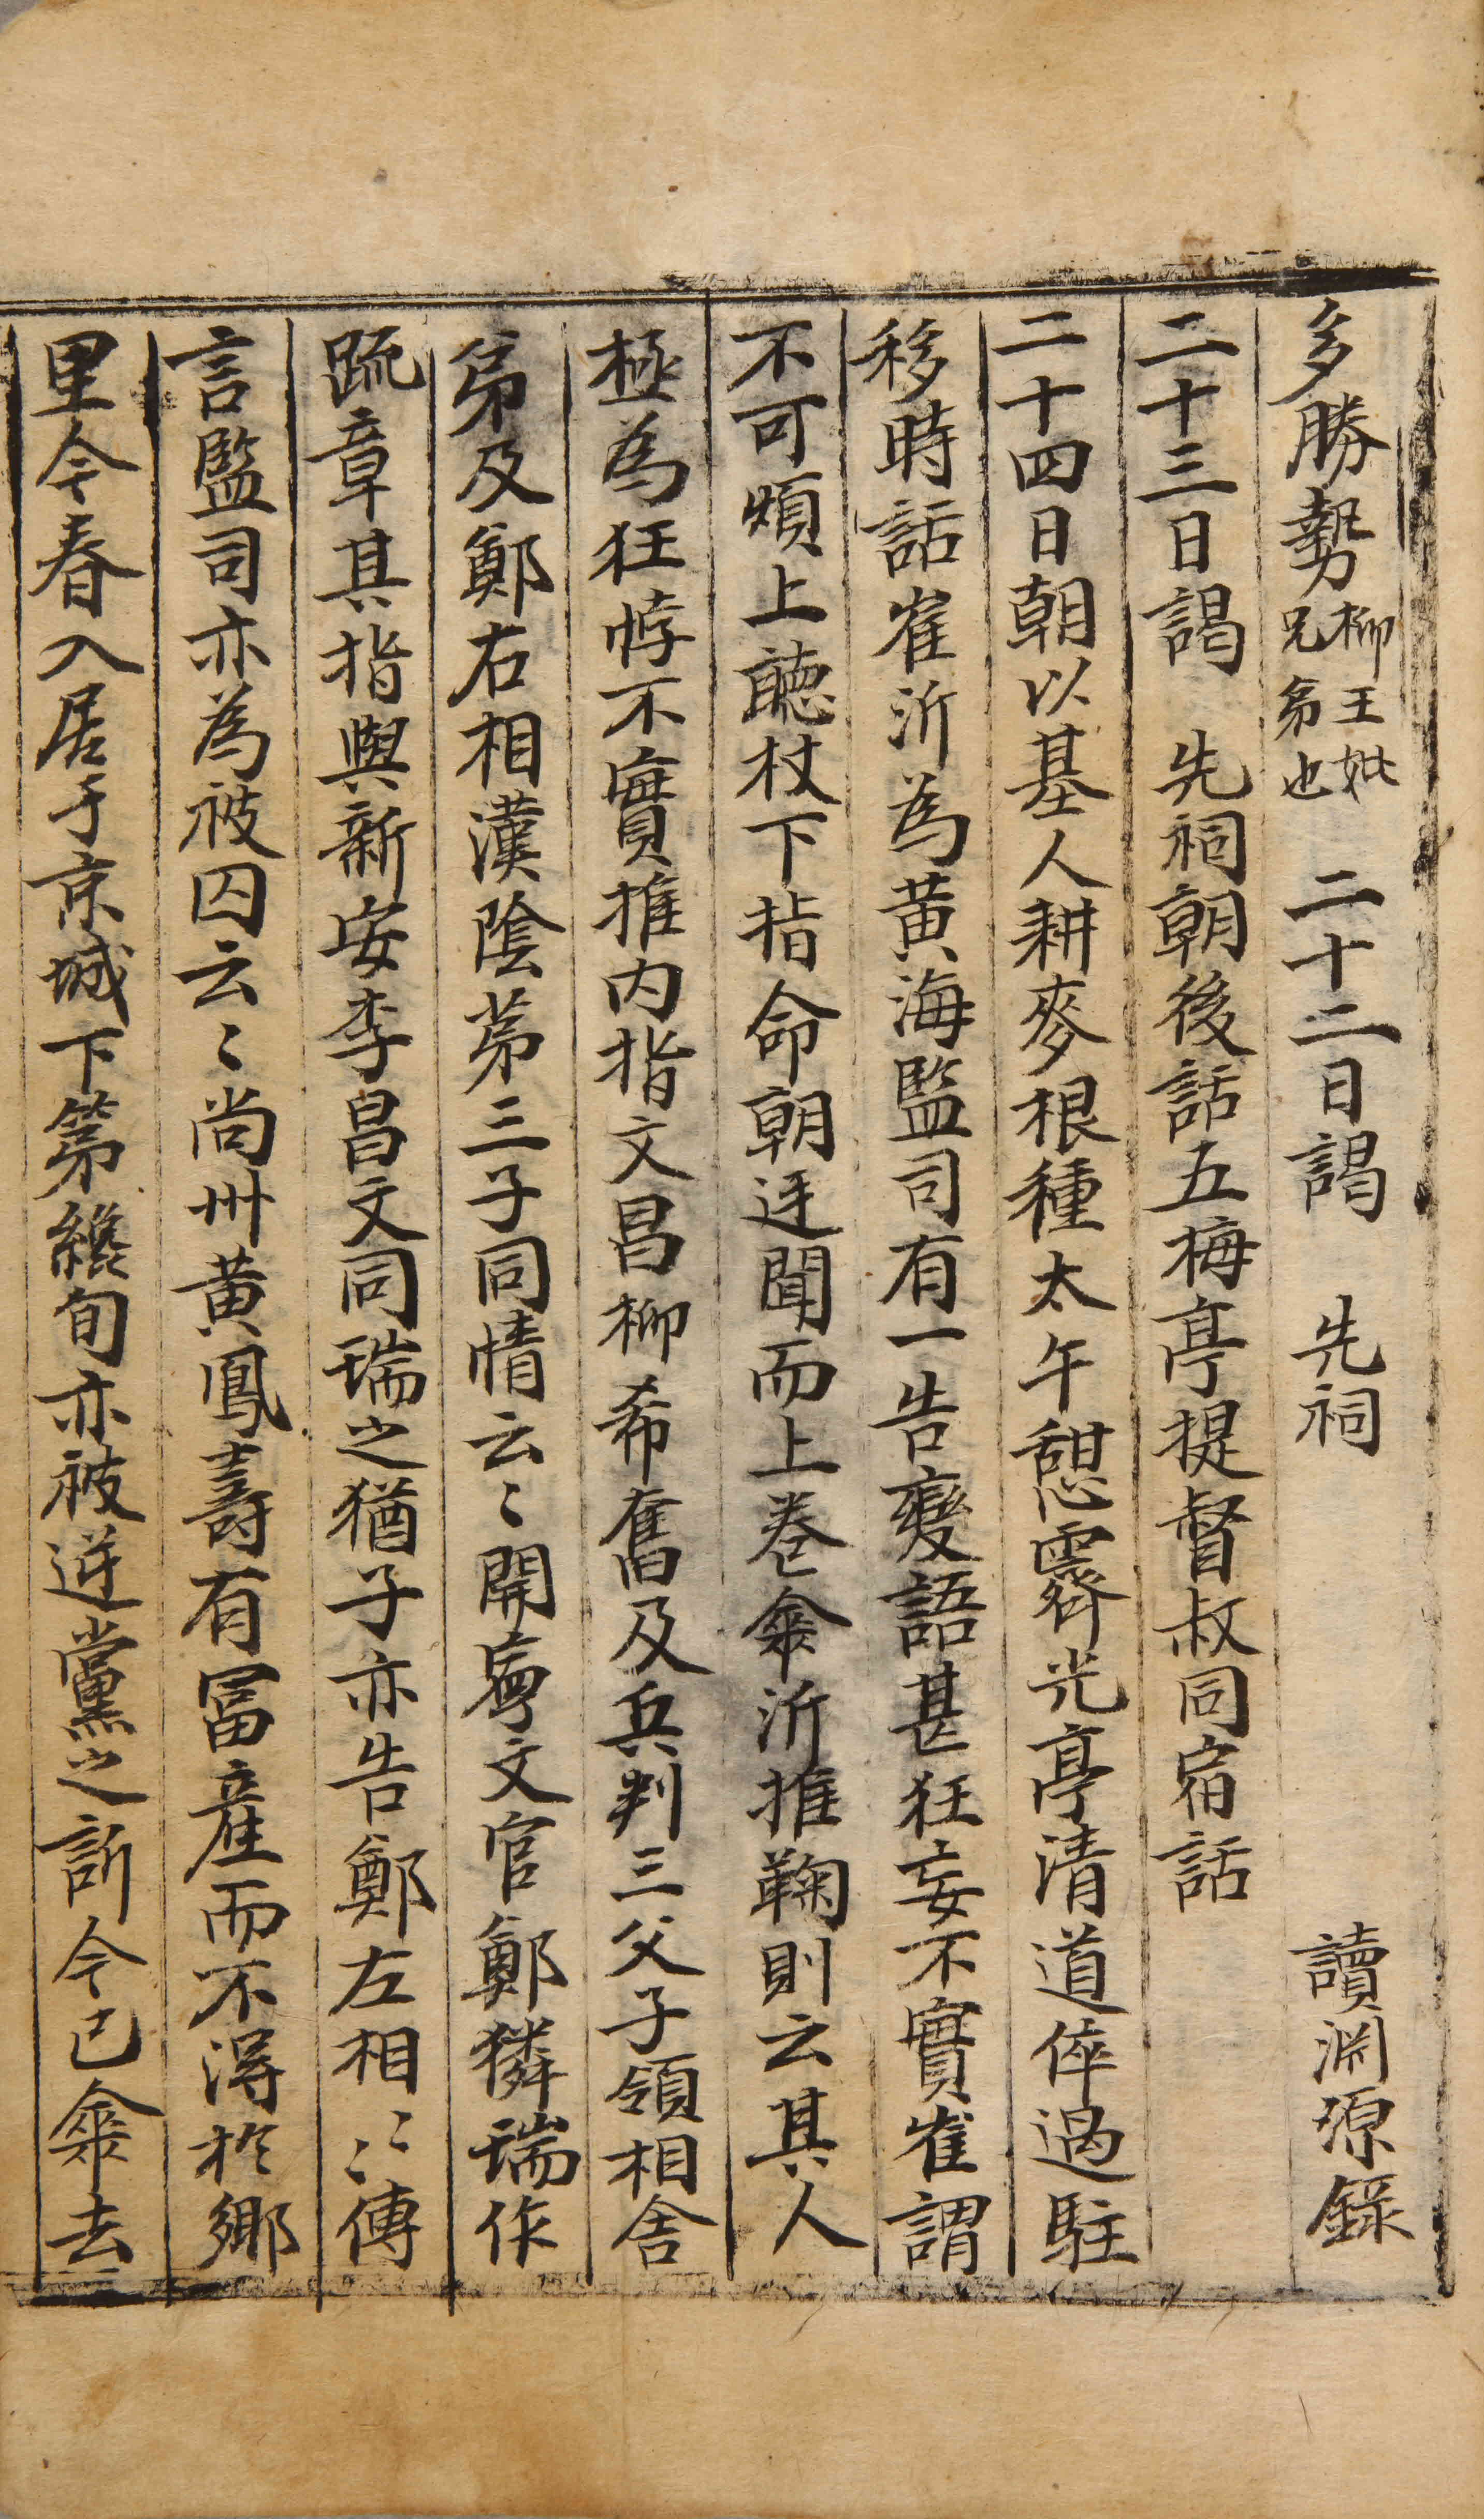 多勝勢柳王妣兄弟也 二十二日謁 先祠 讀淵源錄
二十三日謁 先祠朝後話五梅亭提督叔同宿話
二十四日朝以基人耕麥根種太午憇霽光亭清道倅過駐
移時話崔沂為黃海監司有一告變語甚狂妄不實崔謂
不可煩上聽杖下指命朝廷聞而上卷拿沂推鞠則云其人
極為狂悖不實推內指文昌柳希奮及兵判三父子領相舍
弟及鄭右相漢陰第三子同情云〻開寧文官鄭獜瑞作
疏章其指與新安李昌文同瑞之猶子亦告鄭左相〻傳
言監司亦為被囚云〻尚州黃鳳壽有冨產而不淂於鄉
里今春入居于京城下第纔旬亦被逆黨之訴今已拿去